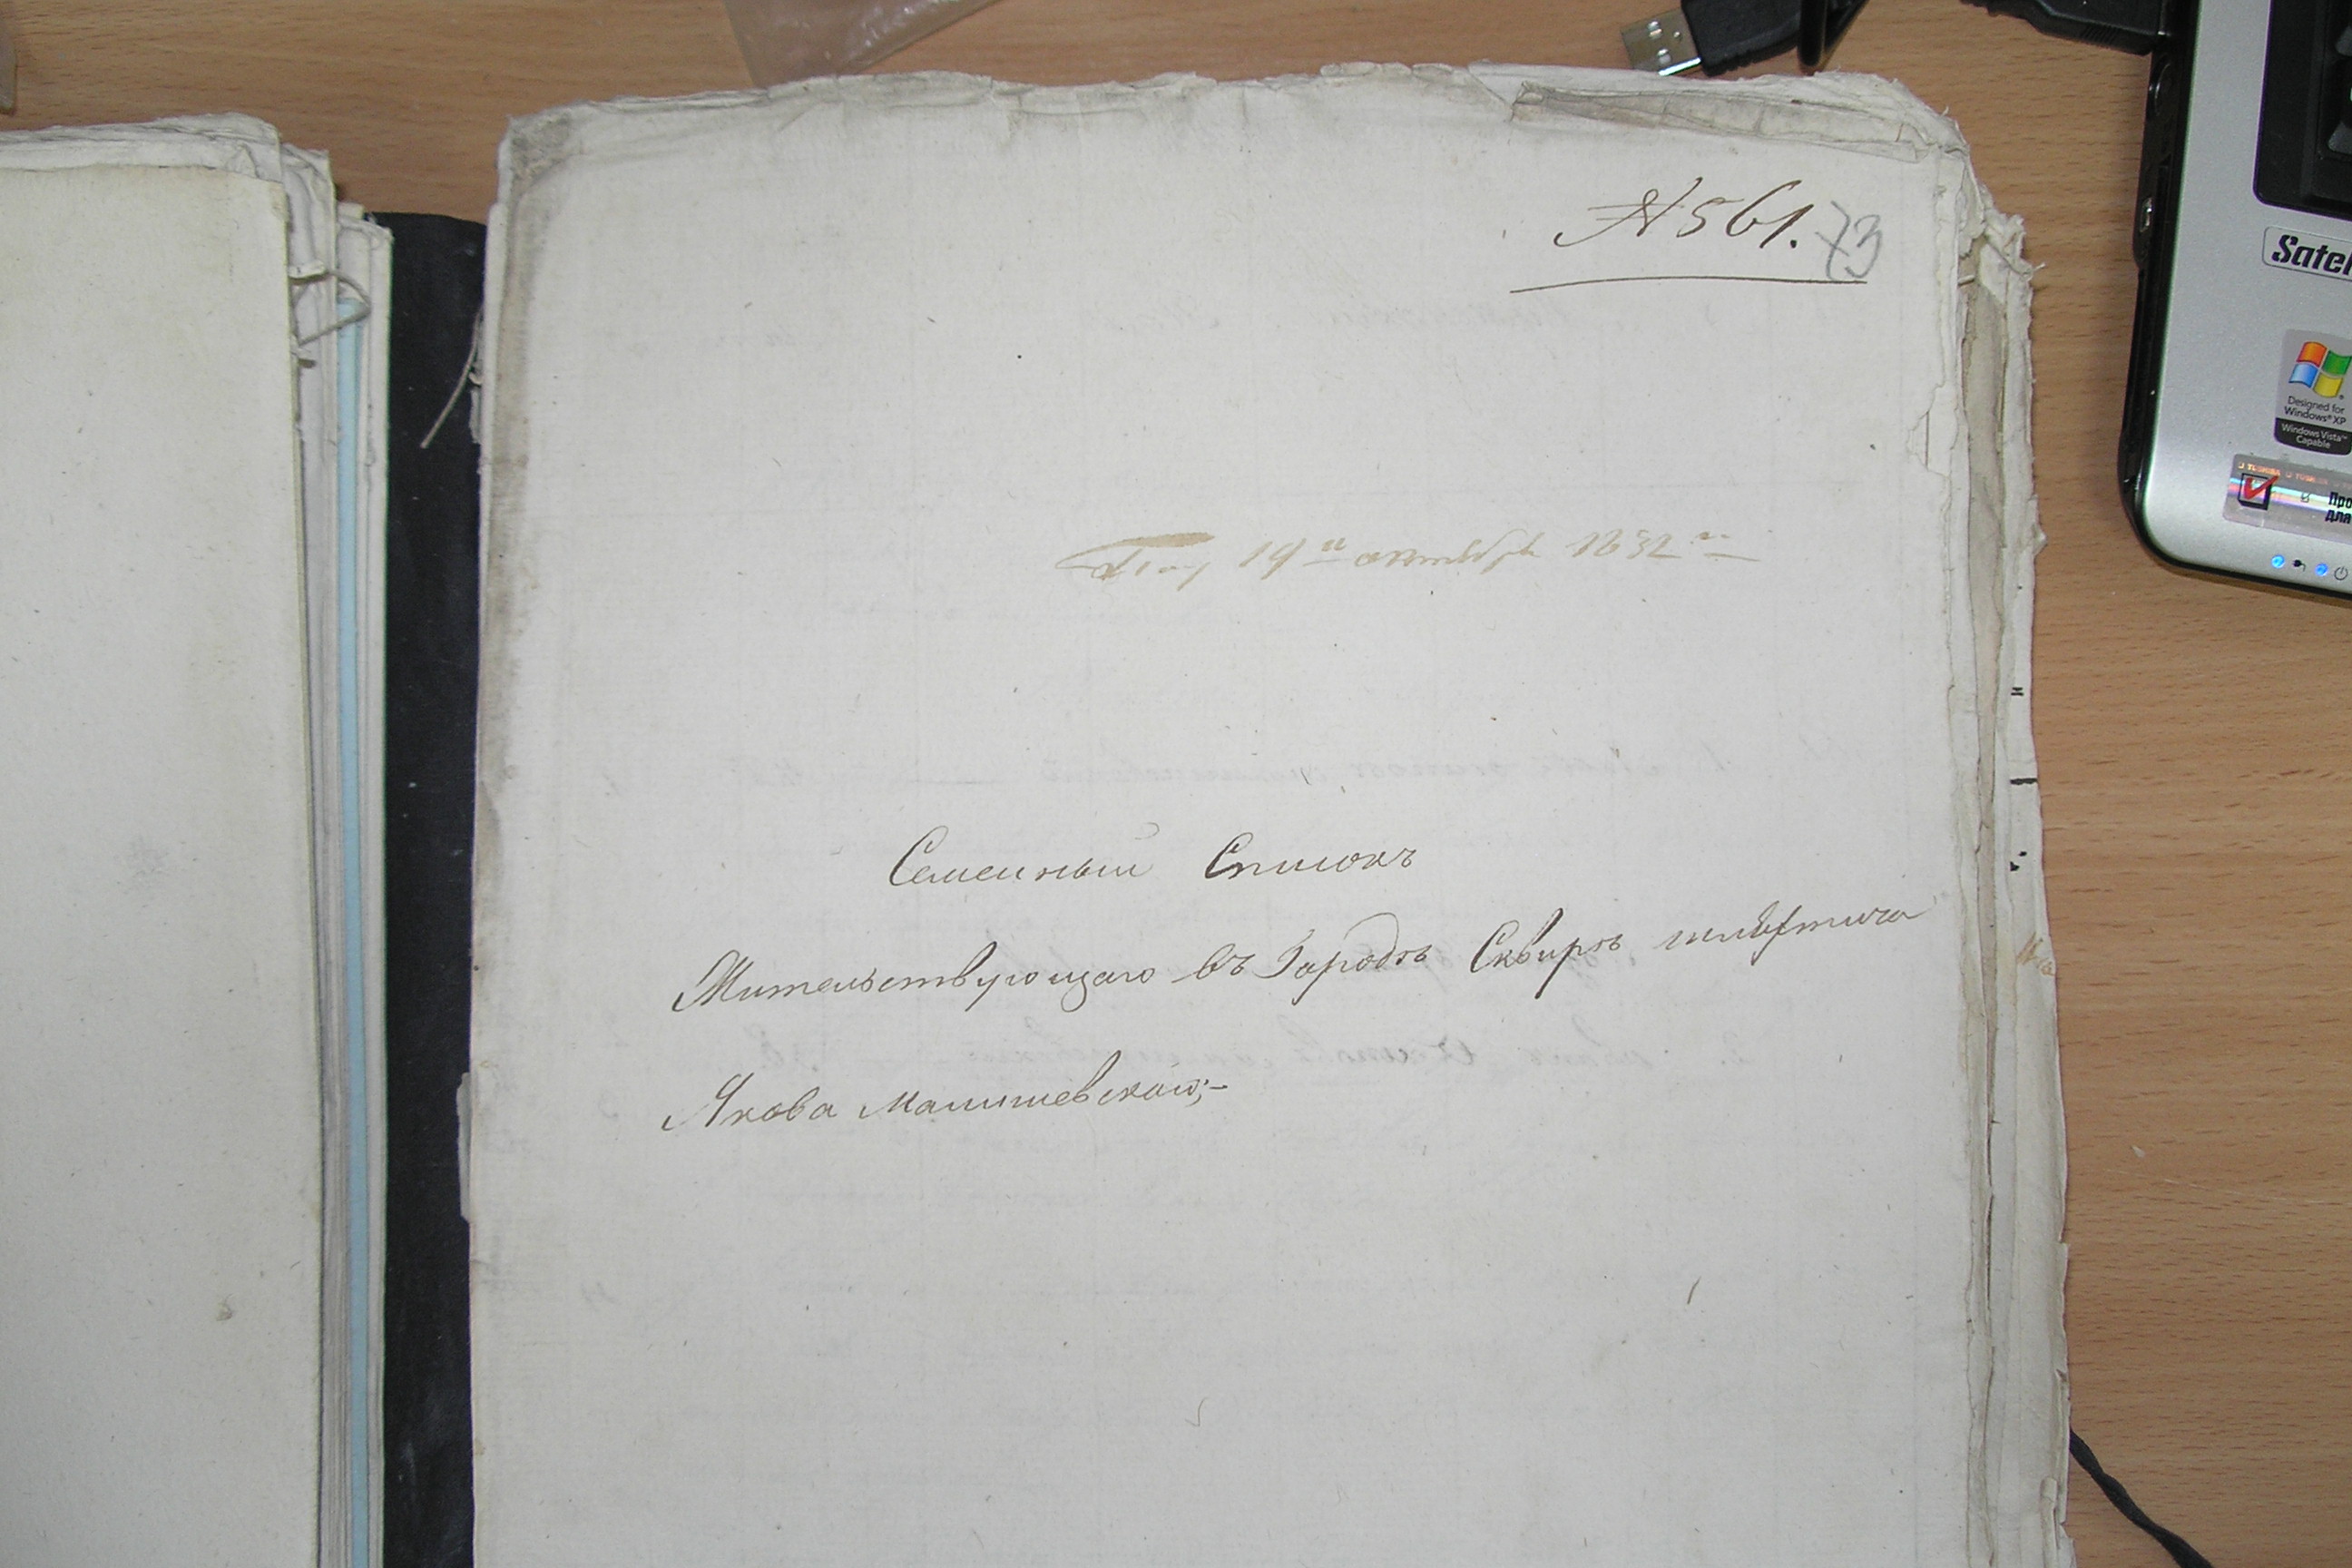 N 561. 73
19 октября 1832
Семейный Списокъ
Жительствующаго въ Городѣ Сквирѣ шляхтича
Якова Малишевского;-
Satel
Designed for
Windows® XP
Windows Vista™
Capable